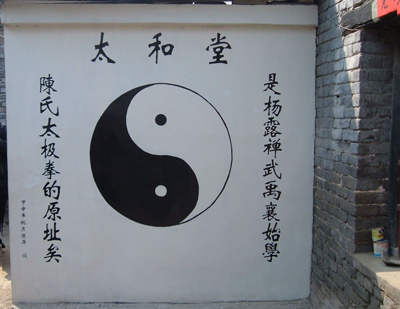 太和堂
是杨露禅武禹襄始學
陳氏太极拳的原址矣